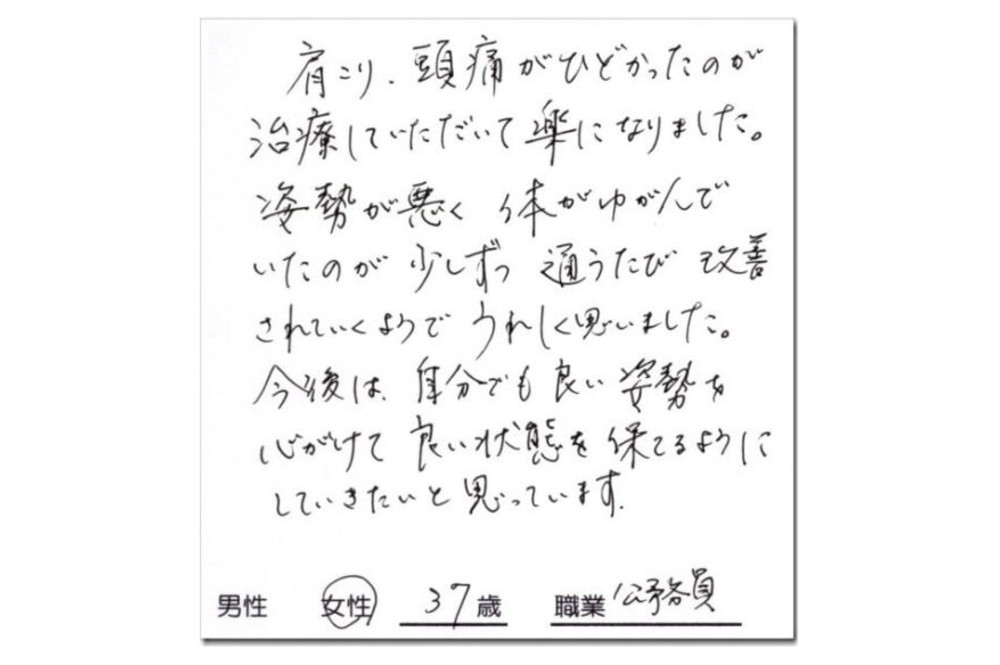 肩こり、頭痛がひどかったのが
治療していただいて楽になりました。
姿勢が悪く 体がゆがんで
いたのが 少しずつ 通うたび 改善
されていくようで うれしく思いました。
今後は、自分でも良い姿勢を
心がけて 良い状態を保てるように
していきたいと思っています。
男性 女性 37歳 職業 公務員